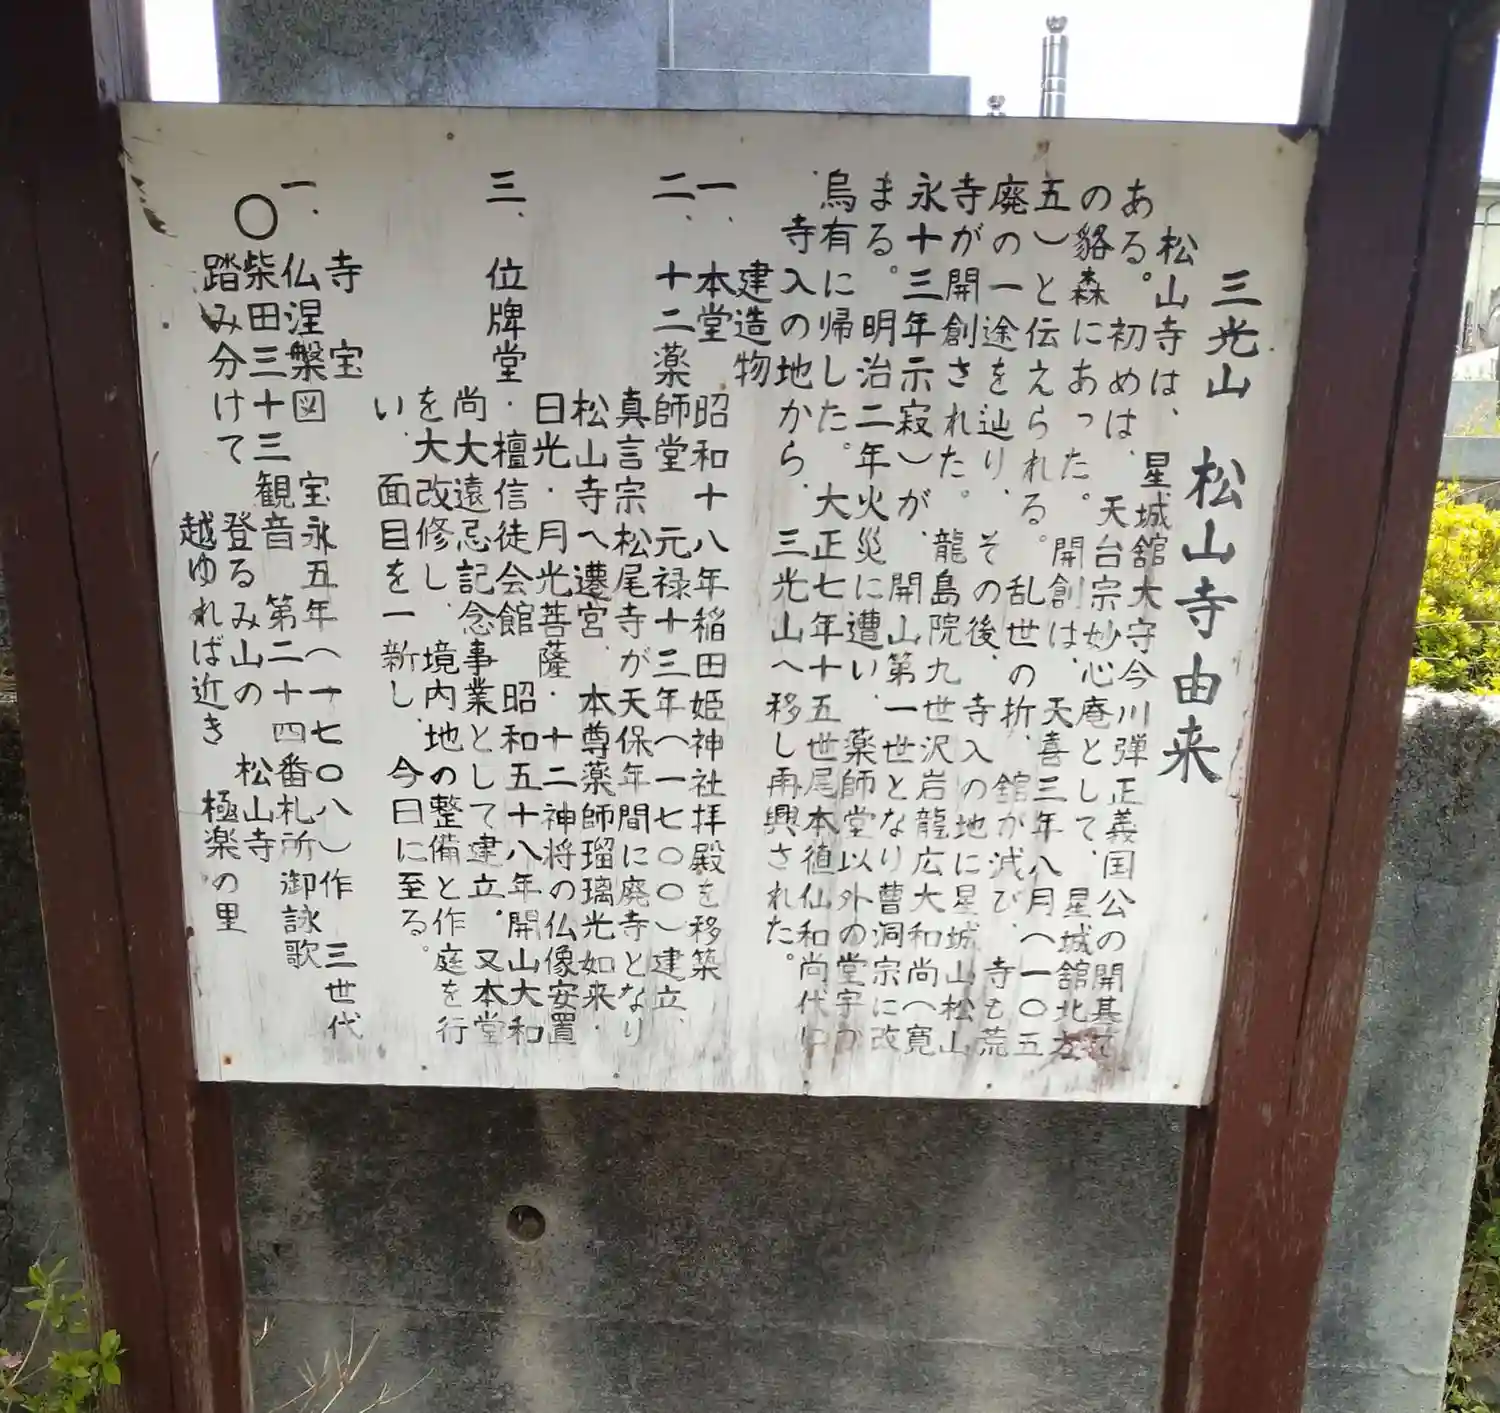 三光山 松山寺由来
松山寺は、星城舘大守今川弾正義国公の開基で
ある。初めは、天台宗妙心庵として、星城舘北方
の貉森にあった。開創は、天喜三年八月(一〇五
五)と伝えられる。乱世の折、舘が滅び、寺も荒
廃の一途を辿り、その後、寺入の地に星城山松山
寺が開創された。龍島院九世沢岩龍広大和尚(寛
永十三年示寂)が、開山第一世となり曹洞宗に改
まる。明治二年火災に遭い、薬師堂以外の堂宇が
烏有に帰した。大正七年十五世尾本徝仙和尚代に
寺入の地から、三光山へ移し再興された。
建造物
一、本堂 昭和十八年稲田姫神社拝殿を移築
二、十二薬師堂 元禄十三年(一七〇〇)建立、
真言宗松尾寺が天保年間に廃寺となり
松山寺へ遷宮、本尊薬師瑠璃光如来・
日光・月光菩薩・十二神将の仏像安置
三、位牌堂・檀信徒会館 昭和五十八年開山大和
尚大遠忌記念事業として建立。又本堂
を大改修し、境内地の整備と作庭を行
い、面目を一新し、今日に至る。
寺宝
一、仏涅槃図 宝永五年(一七〇八)作 三世代
〇柴田三十三観音 第二十四番札所御詠歌
踏み分けて 登るみ山の 松山寺
越ゆれば近き 極楽の里